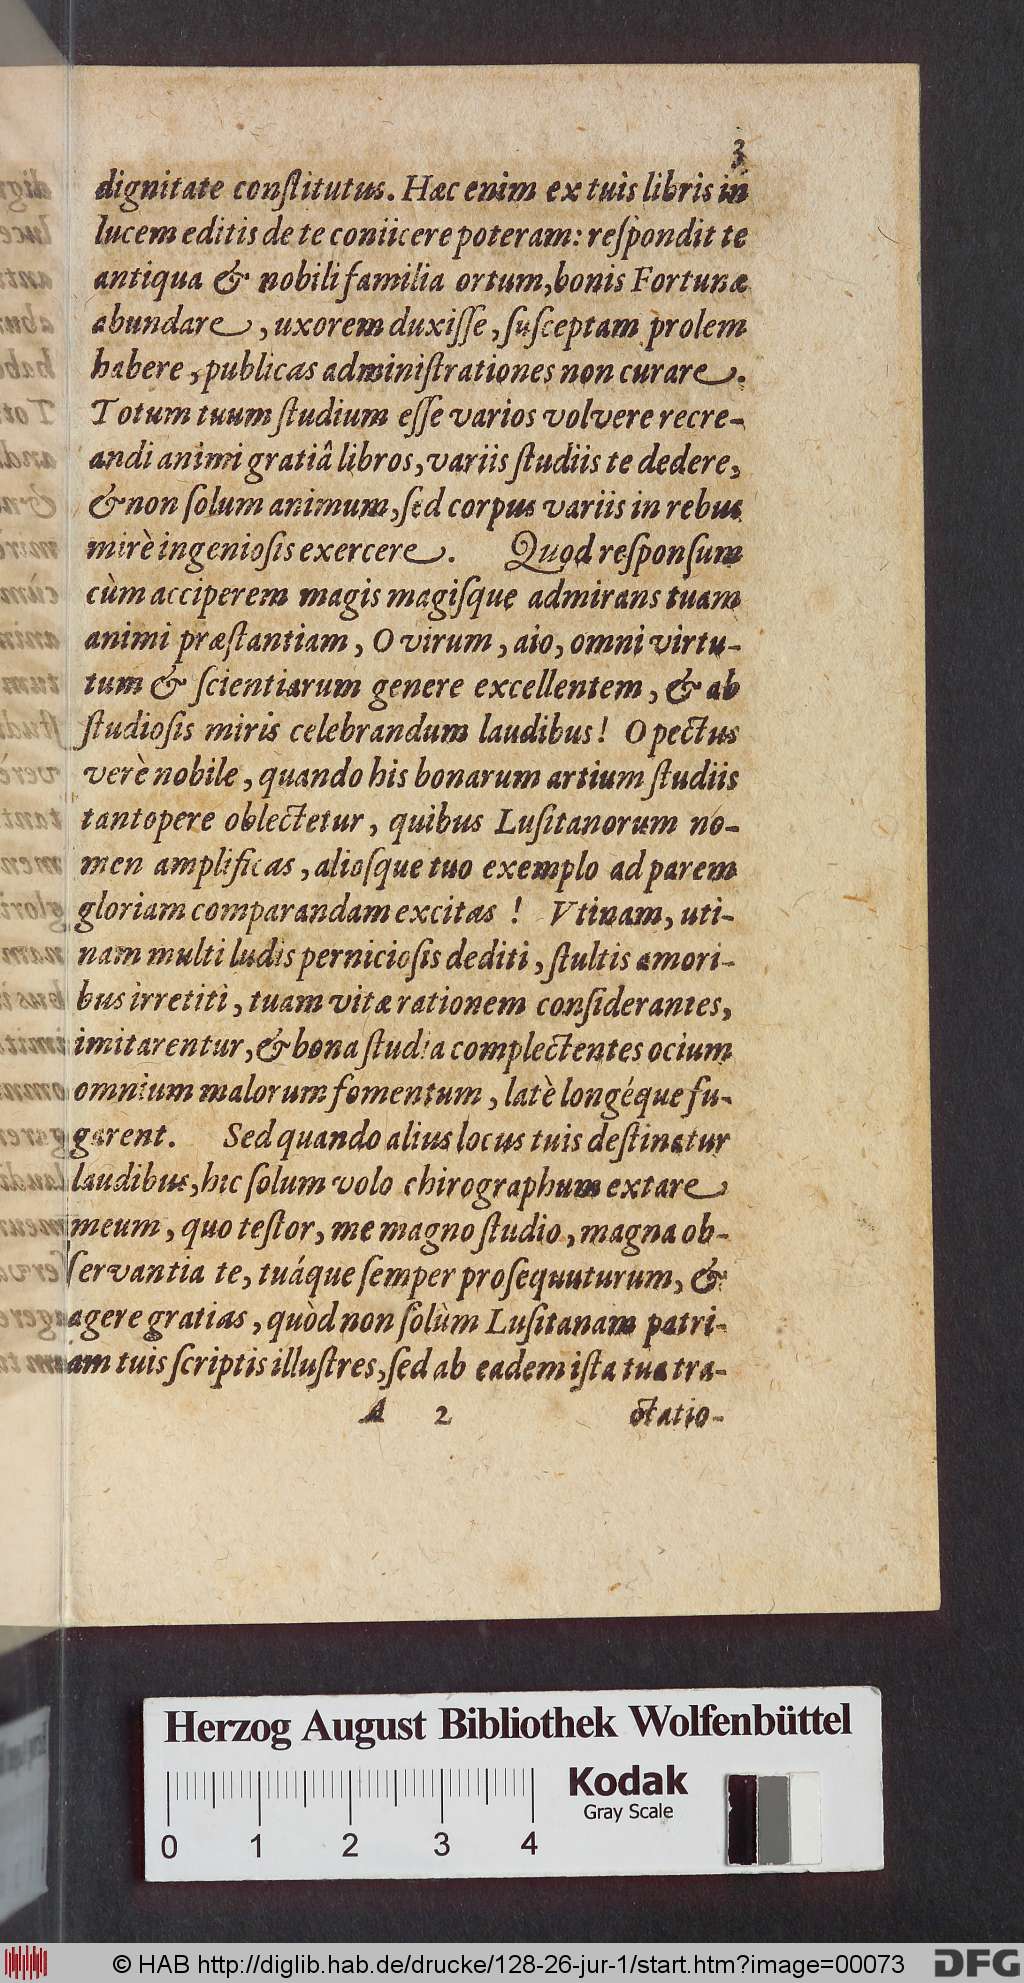 3
dignitate constitutus. Hæc enim ex tuis libris in
lucem editis de te coniicere poteram: respondit te
antiqua & nobili familia ortum, bonis Fortunæ
abundare, uxorem duxisse, susceptam prolem
habere, publicas administrationes non curare.
Totum tuum studium esse varios volvere recre-
andi animi gratiâ libros, variis studiis te dedere,
& non solum animum, sed corpus variis in rebus
mirè ingeniosis exercere. Quod responsum
cùm acciperem magis magisque admirans tuam
animi præstantiam, O virum, aio, omni virtu-
tum & scientiarum genere excellentem, & ab
studiosis miris celebrandum laudibus! O pectus
verè nobile, quando his bonarum artium studiis
tantopere oblectetur, quibus Lusitanorum no-
men amplificas, aliosque tuo exemplo ad parem
gloriam comparandam excitas! Vtinam, uti-
nam multi ludis perniciosis dediti, stultis amori-
bus irretiti, tuam vitæ rationem considerantes,
imitarentur, & bona studia complectentes ocium
omnium malorum fomentum, latè longéque fu-
garent. Sed quando alius locus tuis destinatur
laudibus, hic solum volo chirographum extare
meum, quo testor, me magno studio, magna ob-
servantia te, tuáque semper prosequuturum, &
agere gratias, quòd non solùm Lusitanam patri-
am tuis scriptis illustres, sed ab eadem ista tua tra-
A 2 ctatio-
Herzog August Bibliothek Wolfenbüttel
Kodak
Gray Scale
0 1 2 3 4
© HAB http://diglib.hab.de/drucke/128-26-jur-1/start.htm?image=00073
DFG